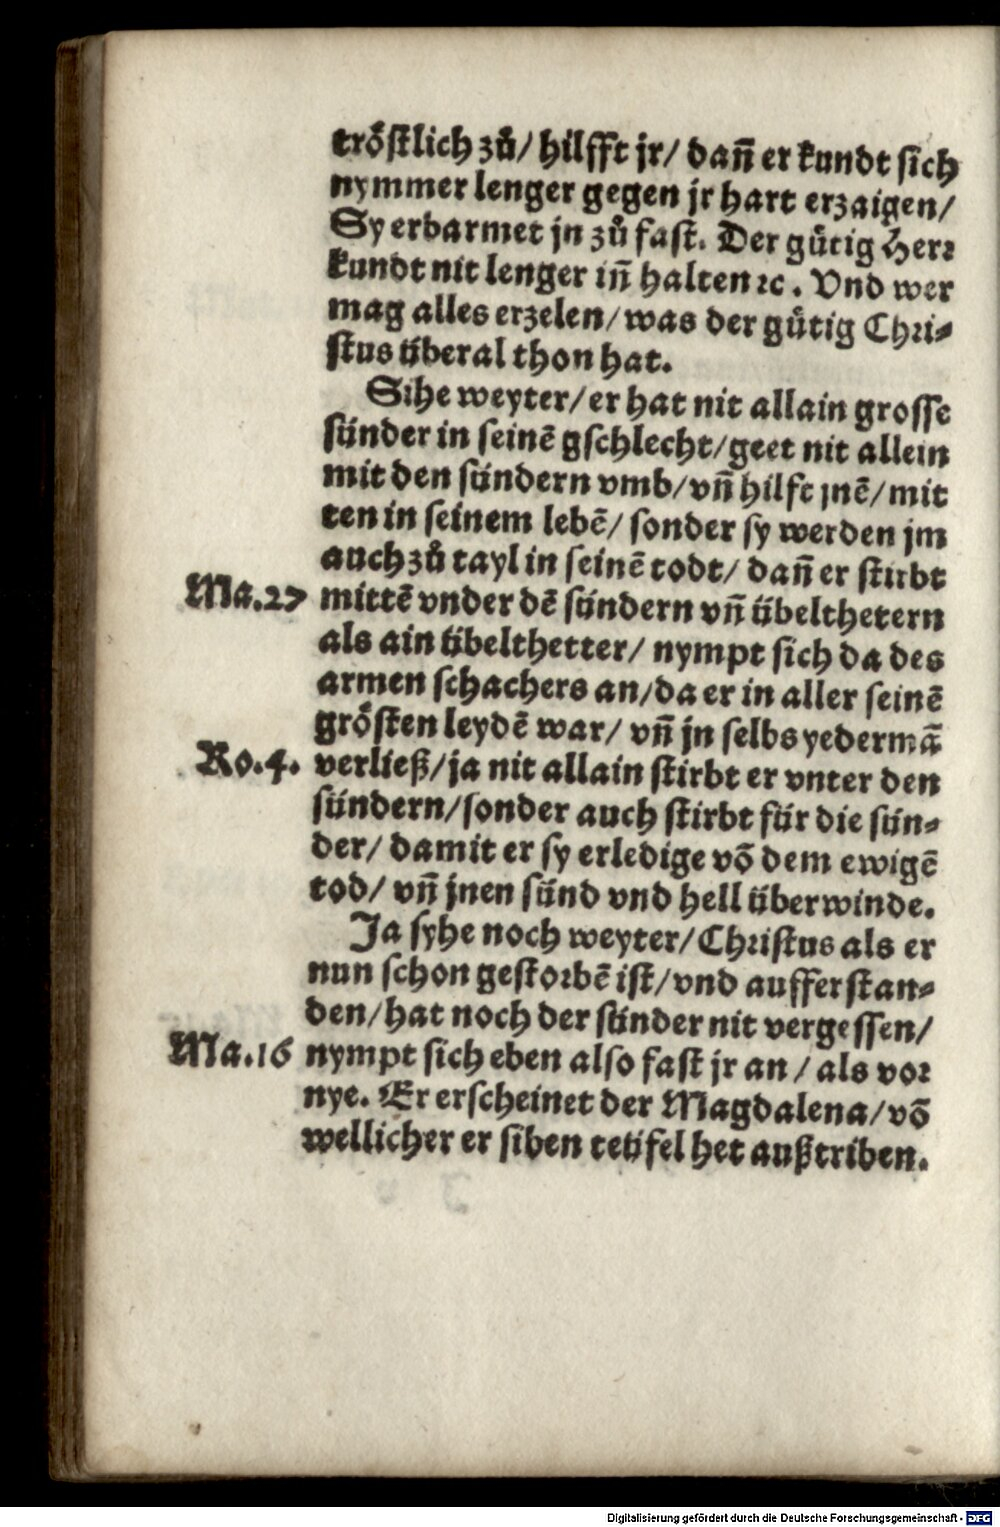 troͤſtlich zuͤ/ hilfft jr/ dañ er kundt ſich
nymmer lenger gegen jr hart erzaigen/
Sy erbarmet jn zuͦ faſt. Der guͤtig Herꝛ
kundt nit lenger iñ halten ꝛc. Vnd wer
mag alles erzelen/ was der guͤtig Chꝛi⸗
ſtus uͤberal thon hat.
Sihe weyter/ er hat nit allain groſſe
ſuͤnder in ſeinē gſchlecht/ geet nit allein
mit den ſuͤndern vmb/ vñ hilft jnē/ mit
ten in ſeinem lebē/ ſonder ſy werden jm
auch zuͦ tayl in ſeinē todt/ dañ er ſtirbt
Ma.27 mittē vnder dē ſuͤndern vñ uͤbelthetern
als ain uͤbelthetter/ nympt ſich da des
armen ſchachers an/ da er in aller ſeinē
groͤſten leydē war/ vñ jn ſelbs yedermā
Ro.4. verließ/ ja nit allain ſtirbt er vnter den
ſuͤndern/ ſonder auch ſtirbt fuͤr die ſuͤn⸗
der/ damit er ſy erledige võ dem ewigē
tod/ vñ jnen ſuͤnd vnd hell uͤberwinde.
Ja ſyhe noch weyter/ Chꝛiſtus als er
nun ſchon geſtoꝛbē iſt/ vnd aufferſtan⸗
den/ hat noch der ſuͤnder nit vergeſſen/
Ma.16 nympt ſich eben alſo faſt jr an/ als voꝛ
nye. Er erſcheinet der Magdalena/ võ
wellicher er ſiben teuͤfel het außtriben.
Digitalisierung gefördert durch die Deutsche Forschungsgemeinschaft - DFG